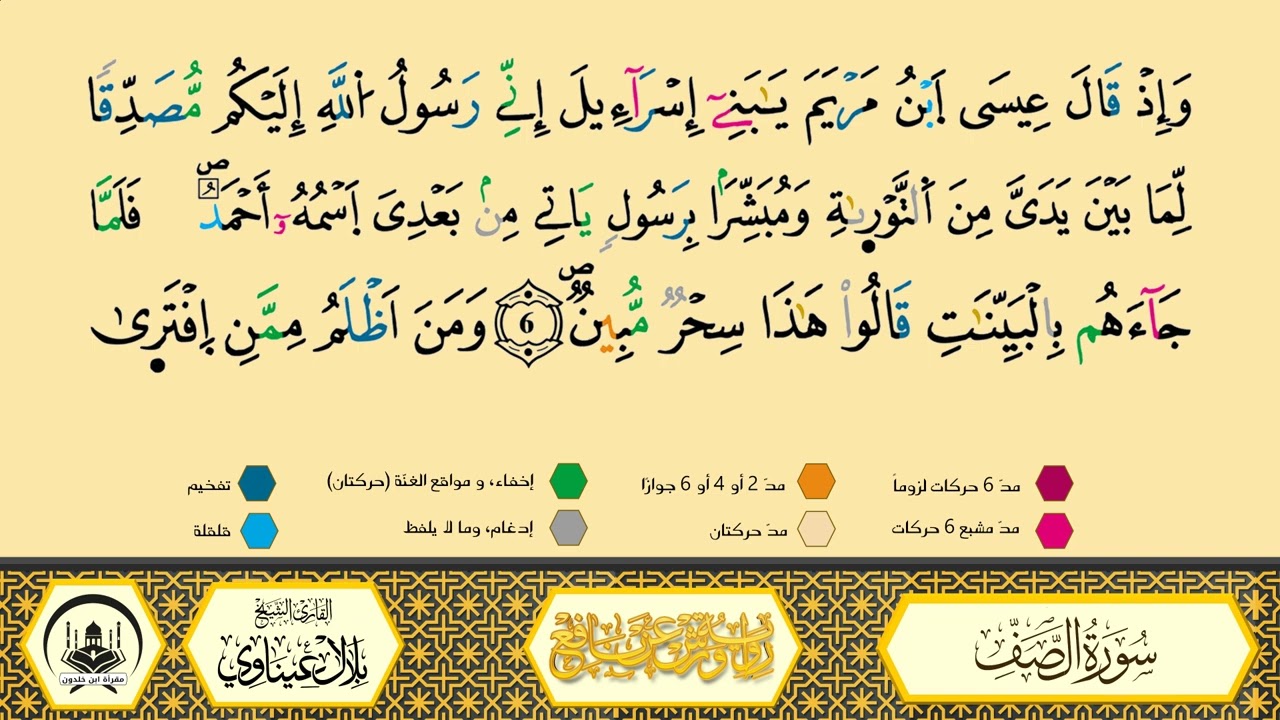 وَإِذْ قَالَ عِيسَى اَبْنُ مَرْيَمَ يَـٰبَنِےٓ إِسْرَآءِيلَ إِنِّے رَسُولُ اُ۬للَّهِ إِلَيْكُم مُّصَدِّقاً
لِّمَا بَيْنَ يَدَىَّ مِنَ اَ۬لتَّوْر۪يٰةِ وَمُبَشِّراَۢ بِرَسُولٍ يَاتِے مِنۢ بَعْدِى اَسْمُهُۥٓ أَحْمَدُۖ فَلَمَّا
جَآءَهُم بِالْبَيِّنَـٰتِ قَالُواْ هَـٰذَا سِحْرٌ مُّبِينٌۖ 6 وَمَنَ اَظْلَمُ مِمَّنِ اِفْتَر۪ىٰ
مدّ 6 حركات لزوماً
مدّ 2 أو 4 أو 6 جوازًا
إخفاء، و مواقع الغنّة (حركتان)
تفخيم
مدّ مشبع 6 حركات
مدّ حركتان
إدغام، وما لا يلفظ
قلقلة
سُورَةُ الصَّفِّ
رواية ورش عن نافع
القارئ الشيخ
بلال عيناوي
مقرأة ابن خلدون